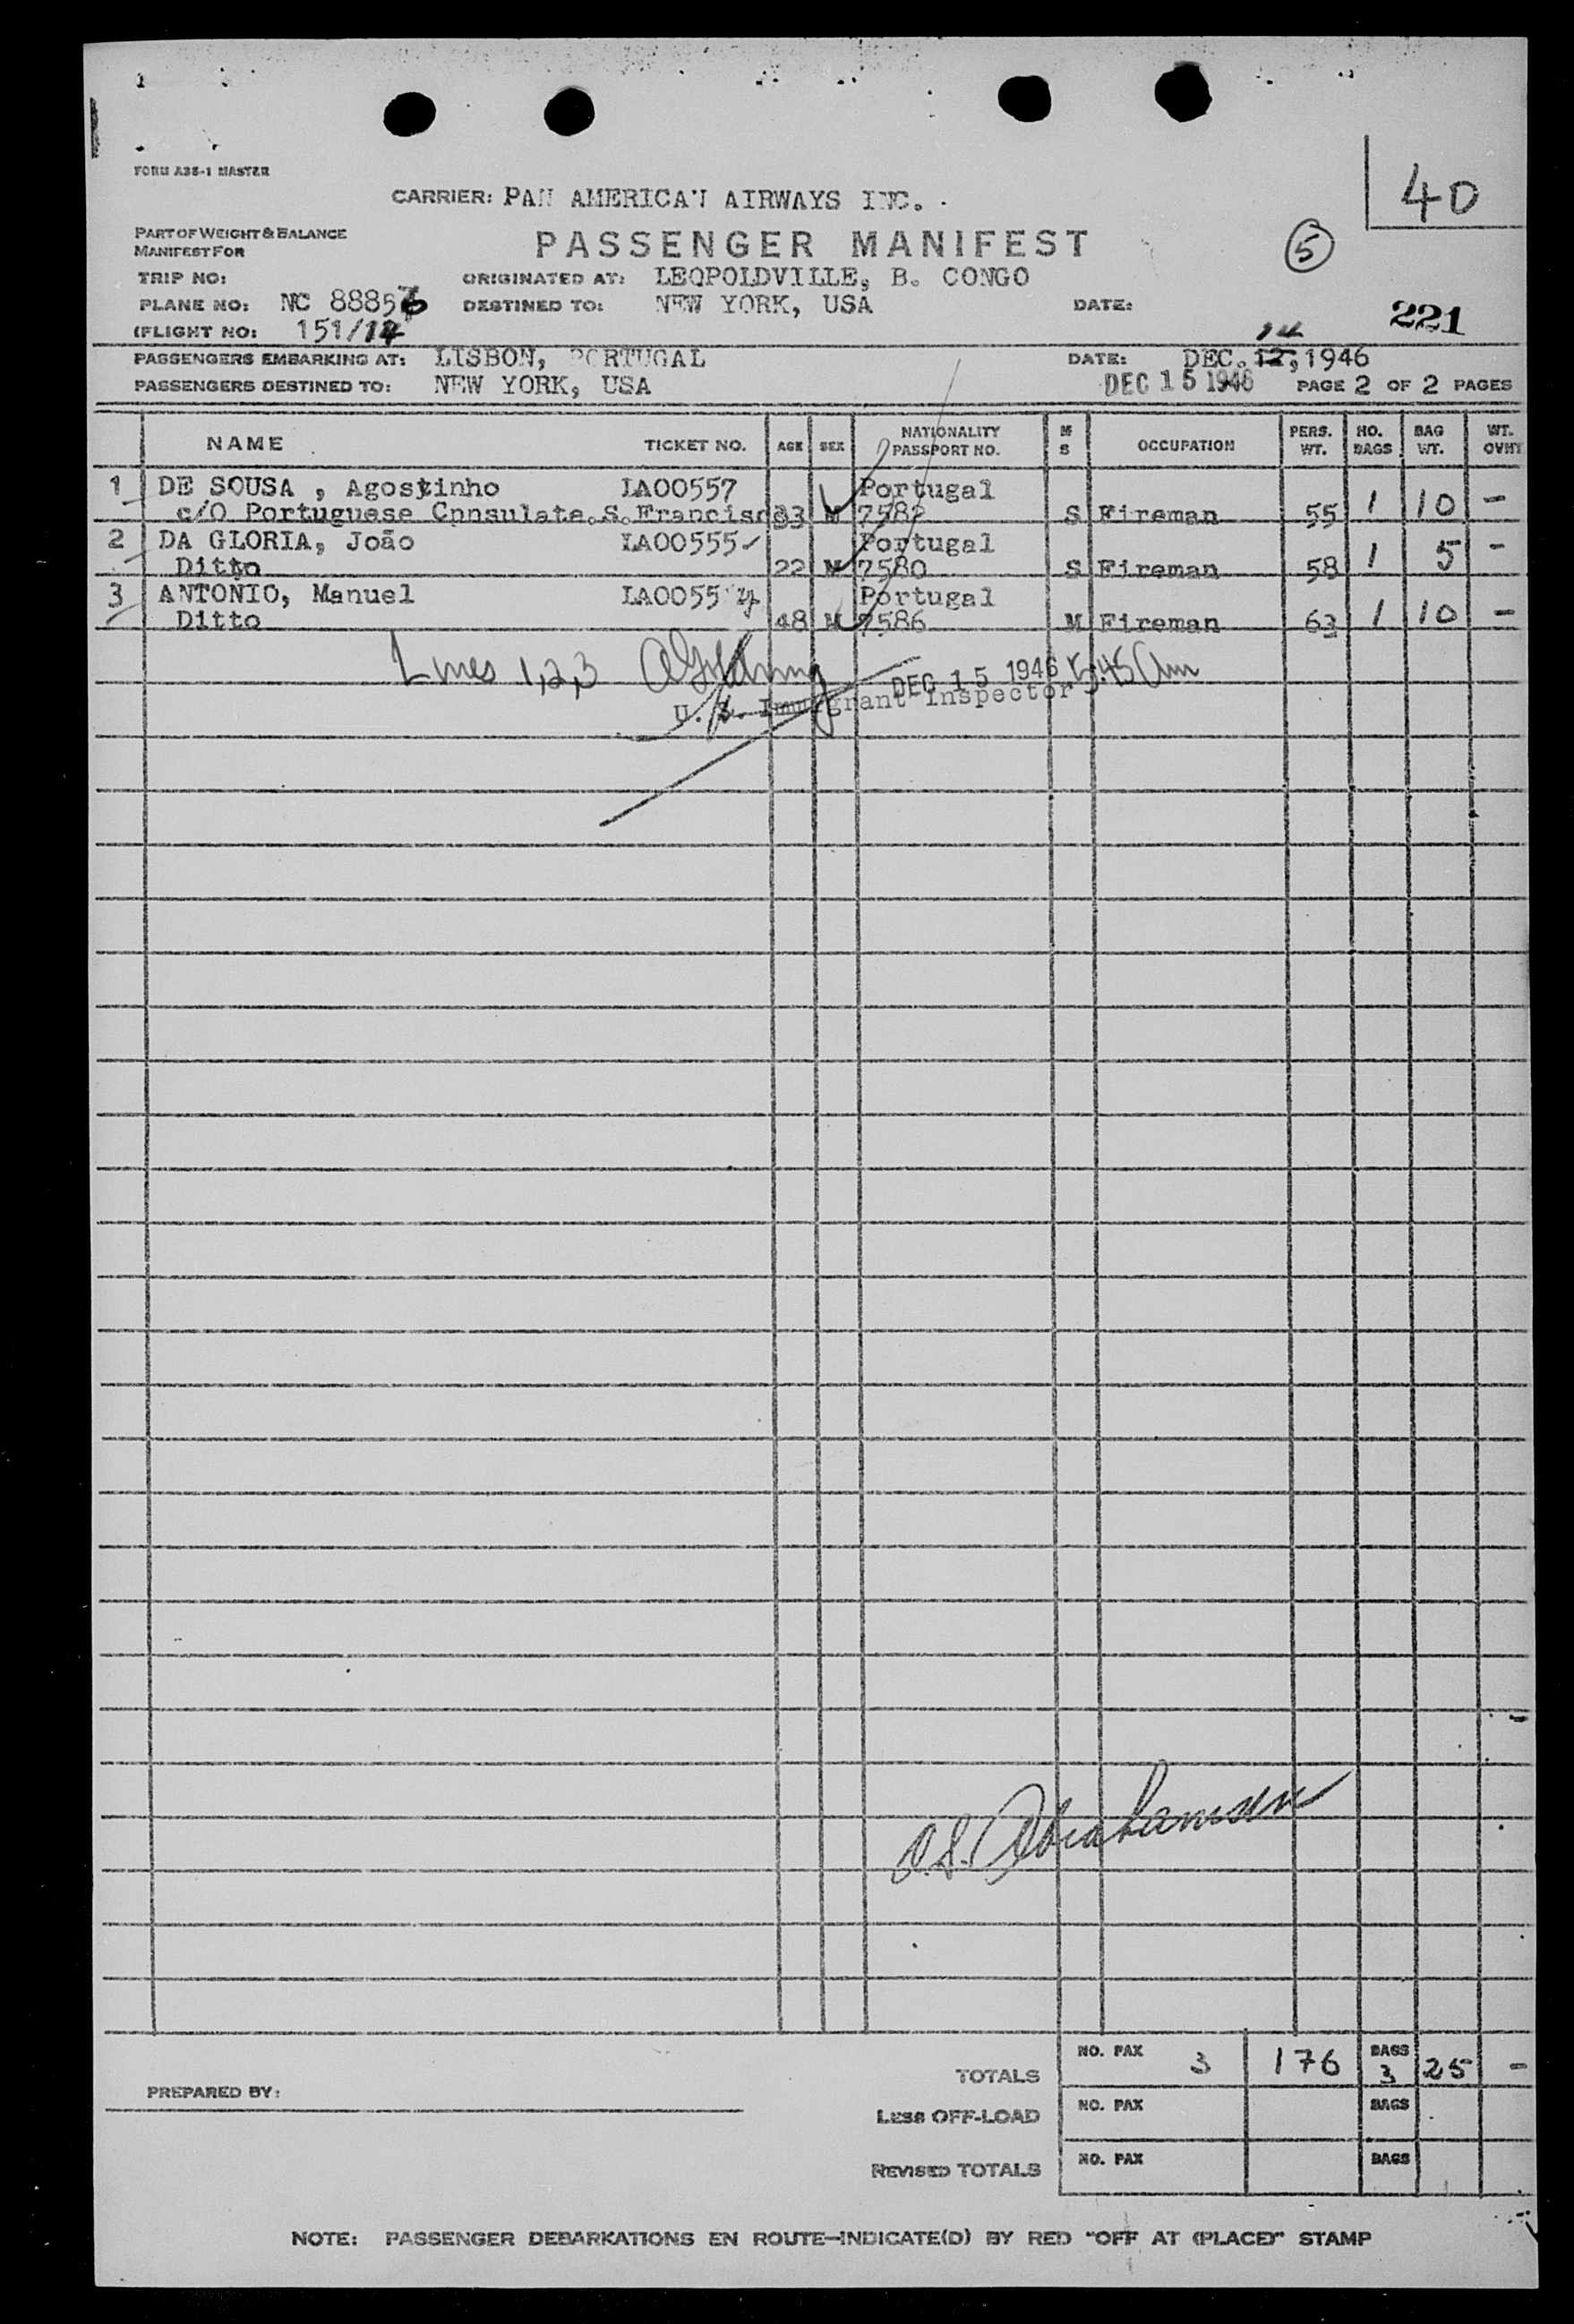 40
FORM A38-1 MASTER
CARRIER: PAN AMERICAN AIRWAYS INC.
PART OF WEIGHT & BALANCE
MANIFEST FOR
PASSENGER MANIFEST
5
TRIP NO:
ORIGINATED AT: LEOPOLDVILLE, B. CONGO
PLANE NO: NC 88856
DESTINED TO: NEW YORK, USA
DATE:
221
FLIGHT NO: 151/14
14
PASSENGERS EMBARKING AT: LISBON, PORTUGAL
DATE: DEC. 12, 1946
PASSENGERS DESTINED TO: NEW YORK, USA
DEC 15 1946
PAGE 2 OF 2 PAGES
NAME TICKET NO. AGE SEX NATIONALITY PASSPORT NO. M S OCCUPATION PERS. WT. NO. BAGS BAG WT. WT. OVHT
1 DE SOUSA , Agostinho LA00557 Portugal
c/O Portuguese Cpnsulate.S.Francisco 33 M 7582 S Fireman 55 1 10 -
2 DA GLORIA, João LA00555 Portugal
Ditto 22 M 7580 S Fireman 58 1 5 -
3 ANTONIO, Manuel LA00554 Portugal
Ditto 48 M 7586 M Fireman 63 1 10 -
Lines 1,2,3
DEC 15 1946 5:45 am
U. S. Immigrant Inspector
O.S. Abrahamsen
TOTALS NO. PAX 3 176 BAGS 3 25 -
PREPARED BY:
LESS OFF-LOAD NO. PAX BAGS
REVISED TOTALS NO. PAX BAGS
NOTE: PASSENGER DEBARKATIONS EN ROUTE—INDICATE(D) BY RED "OFF AT (PLACE)" STAMP